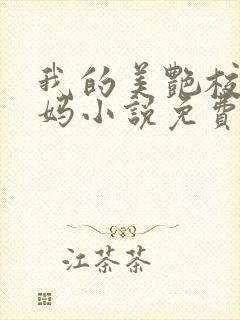 我的美艷校
妈小說免費
江茶茶